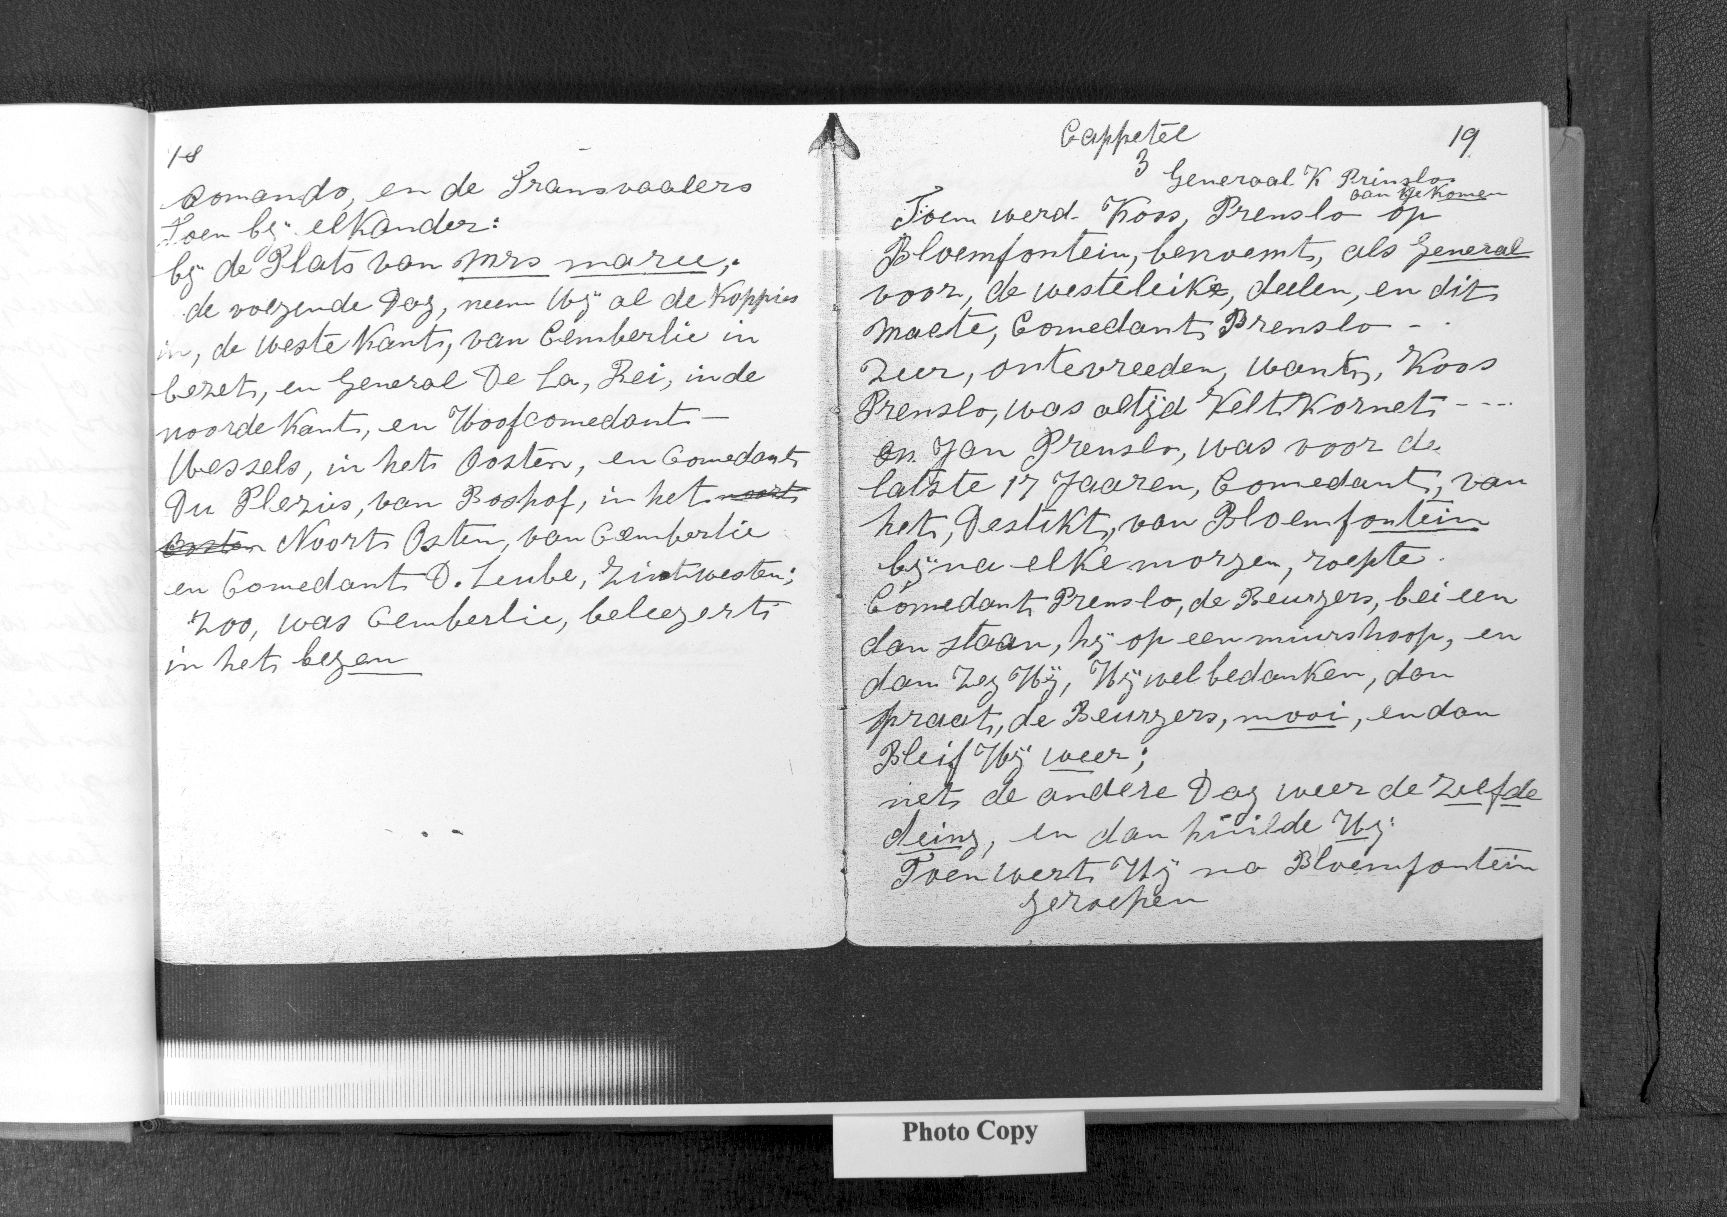 18
comando, en de Transvaalers
Toen bij elkander:
bij de Plats van Mrs marie,.
de volgende Dag, neem Wij al de Koppies
in, de weste Kant, van Cemberlie in
bezet, en General De La, Rei, in de
noorde Kant, en Hoofcomedant —
Wessels, in het Oosten, en Comedant
Du Plezies, van Boshof, in het noort
Oosten Noort Osten, van Cemberlie
en Comedant D. Leube, Zint westen;
Zoo, was Cemberlie, beleegert
in het began
Cappetel 19
3 Generaal K Prinsloo
aan ge Komen
Toen werd Koos, Prenslo op
Bloemfontein, benoemt, als General
voor, de westeleike, deelen, en dit
Maete, Comedant Prenslo - .
Zeer, ontevreeden, want, Koos
Prenslo, was altijd Velt Kornet - --
en Jan Prenslo, was voor de
latste 17 Jaaren, Comedant, van
het, Destikt, van Bloemfontein
bijna elke morgen, roepte
Comedant Prenslo, de Beurgers, bei een
dan staan, hij op een miershoop, en
dan Zeg Hij, Hij wel bedanken, dan
praat, de Beurgers, mooi, en dan
Bleif Hij weer;
net de andere Dag weer de Zelfde
deing, en dan huilde Hij
Toen wert Hij na Bloemfontein
geroepen
Photo Copy